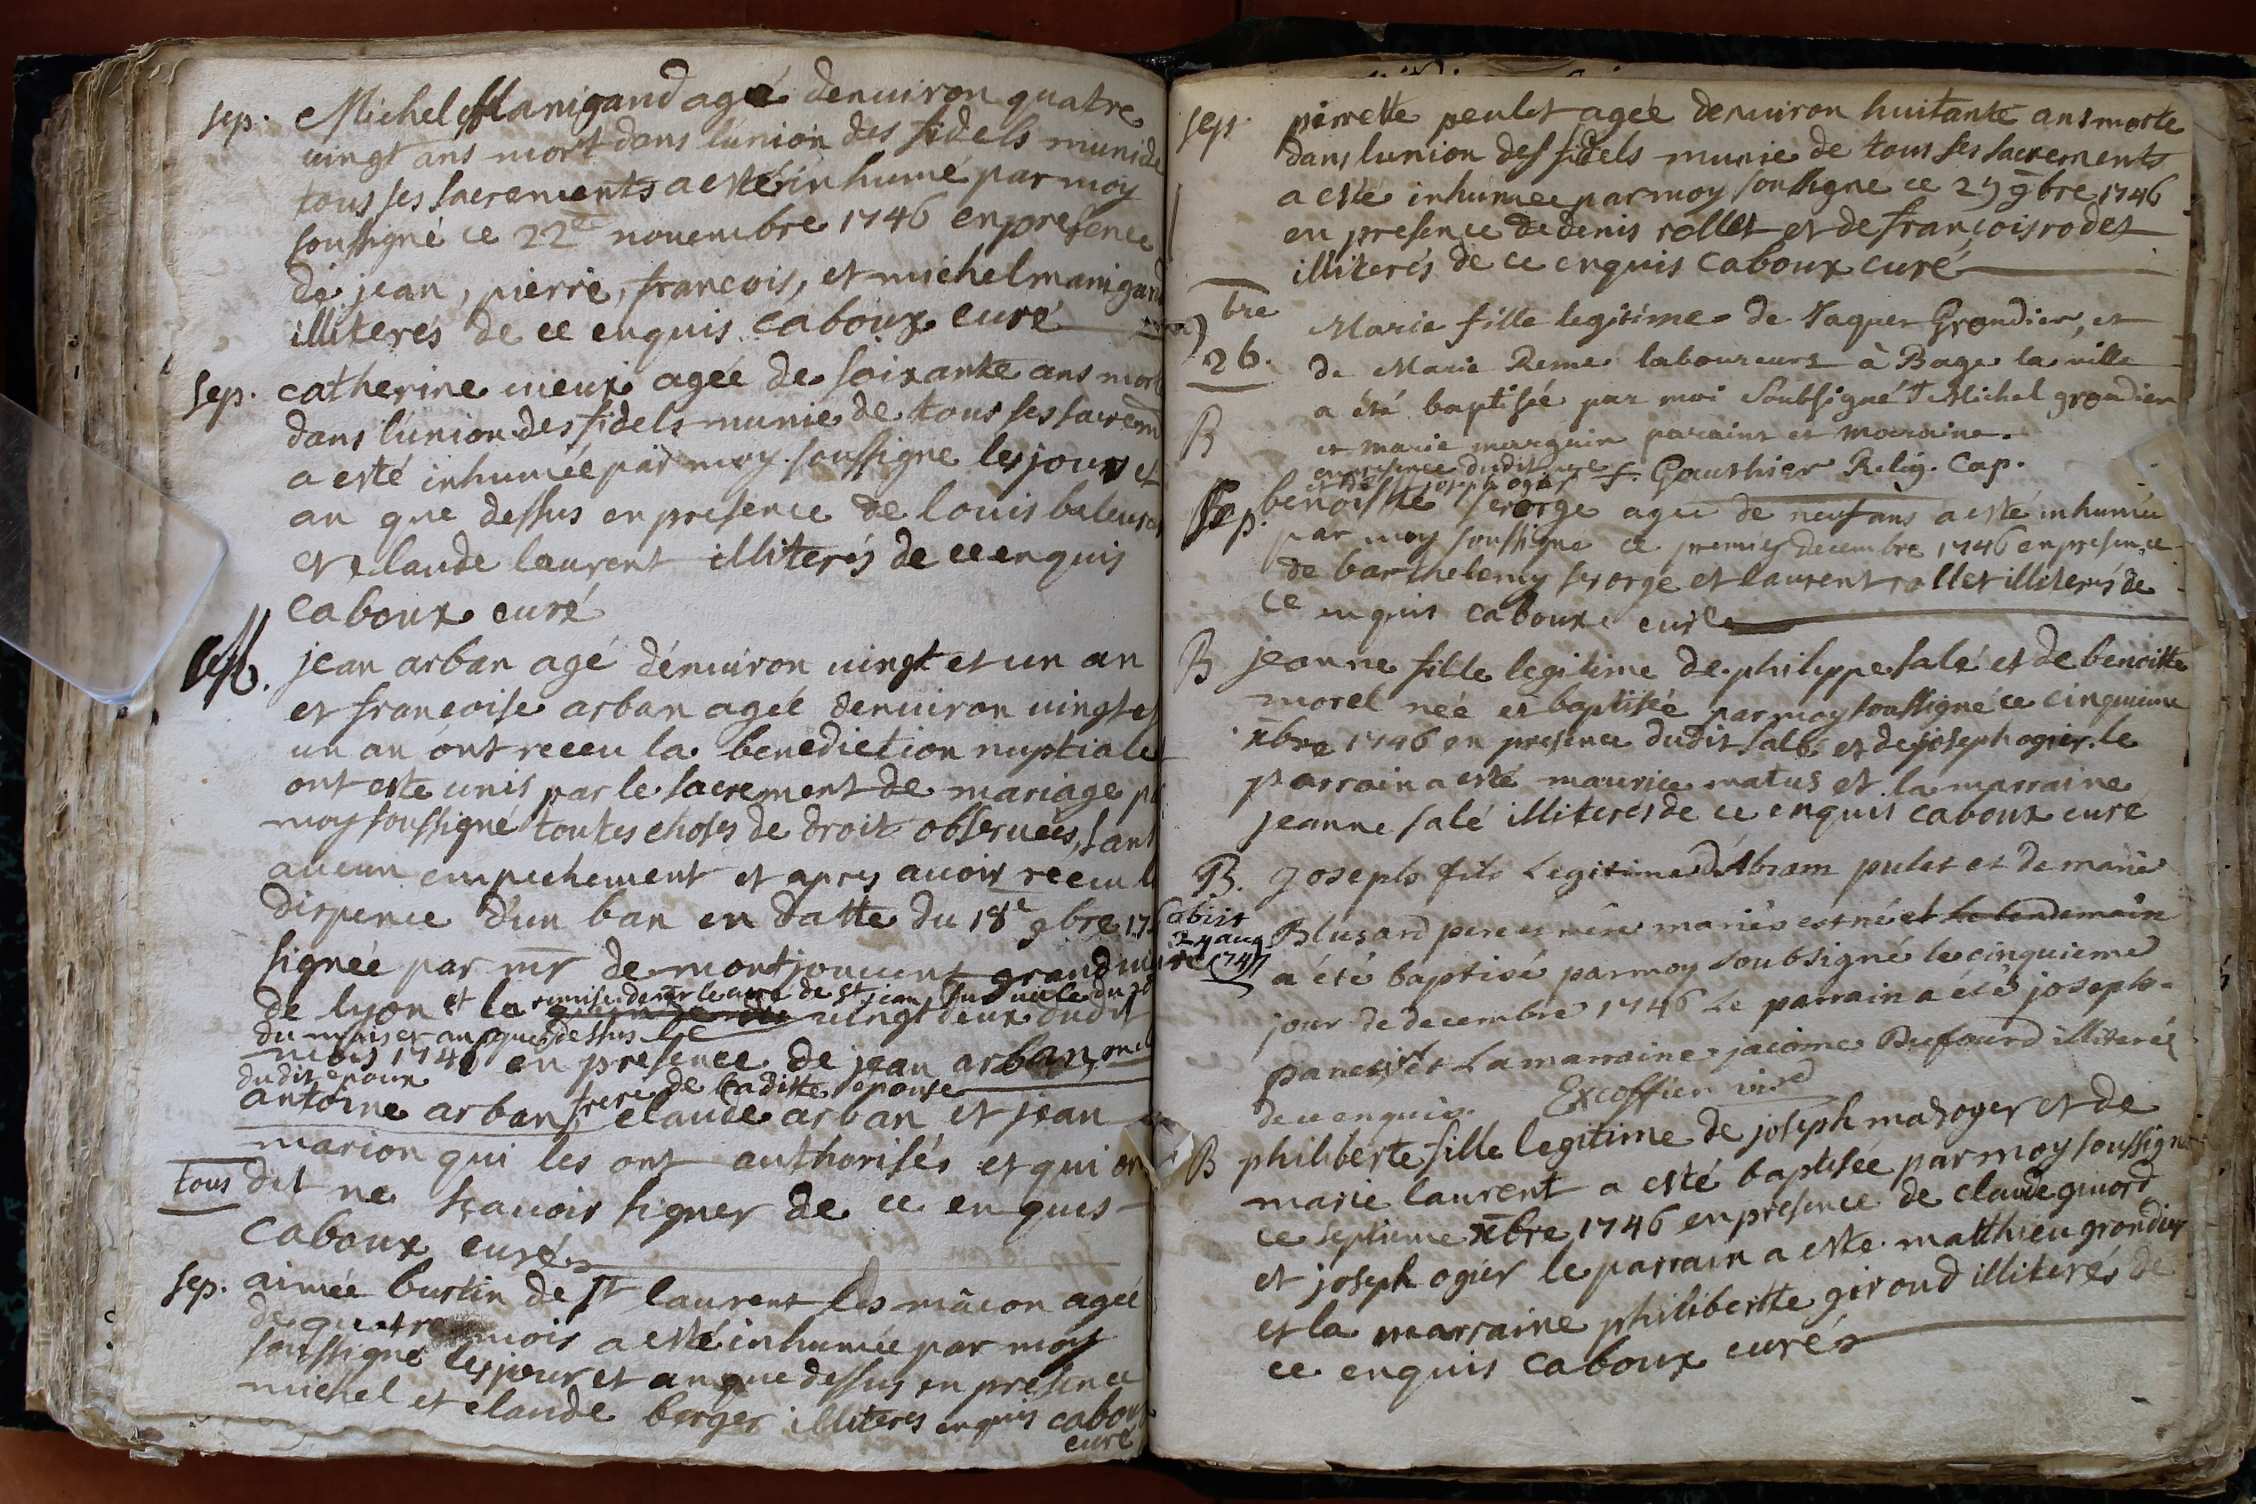 sep. Michel Manigand agé denuiron quatre
uingt ans mort dans lunion des fidels muni de
tous ses sacrements a esté inhumé par moy
soussigné ce 22e nouembre 1746 en presence
de jean, pierre, francois, et michel manigand
illiterés de ce enquis caboux curé
sep. catherine uieux agée de soixante ans mort
dans l'union des fidels munie de tous ses sacrem
a esté inhumée par moy soussigne les jours et
an que dessus en presence de louis
et claude laurent illiterés de ce enquis
caboux curé
jean arban agé dénuiron uingt et un an
et francoise arban agée denuiron uingt et
un an ont receu la benediction nuptiale et
ont esté unis par le sacrement de mariage p
moy soussigné toutes choses de droit obseruées, sant
aucun empechement et apres auoir réceu l
dispence d'un ban en datte du 18e 9bre 17
signée par mr de montjouuent grand
de lyon et la remise de mr le curé de st jean
uingt deux dudit
du mois et an que dessus le
mois 1746 en presence de jean arban
dudit epoux
frere de laditte epouse
antoine arban, claude arban et jean
marion qui les ont authorisés et qui on
tous dit ne sçauoir signer de ce enquis
caboux curé
sep. aimée burtin de st laurent les mâcon agée
de quatre mois a esté inhumée par moy
soussigné les jour et an que dessus en presence
michel et claude berger illiteres enquis cabou
curé
sep. pierrette peulet agée denuiron huitante ans morte
dans lunion des fidels munie de tous ses sacrements
a estée inhumée par moy soussigne ce 25 9bre 1746
en presence de denis rollet et de françois rodet
illiterés de ce enquis caboux curé
bre
26.
Marie fille legitime de Jaques Grandier, et
de Marie Reme laboureurs à Bage la uille
a été baptisée par moi Soubsigné Michel grandier
B et marie marguin parains et maraine.
en presence dudit pere
et de joseph ogier f. Gauthier Relig. Cap.
sep. benoiste serorge agée de neuf ans a esté inhumée
par moy soussigne ce premier decembre 1746 en presence
de barthelemy serorge et laurent rollet illiterés de
ce enquis caboux curé
B jeanne fille legitime de philippe salé et de benoitte
morel née et baptisée par moy soussigné ce cinquieme
xbre 1746 en presence dudit salé et de joseph ogier. le
parrain a esté maurice matus et la marraine
jeanne salé illiterés de ce enquis caboux curé
B. Joseph fils Legitime d'Abram pulet et de marie
obiit
24 aug
1747
Blusard pere et mere mariés est né et le lendemain
a été baptisé par moy soubsigné le cinquieme
jour de decembre 1746 Le parrain a été joseph
et La marraine jacôme Dufourd illiterés
de ce enquis. Excoffier vic
B philiberte fille legitime de joseph mazoyer et de
marie laurent a esté baptisée par moy soussigne
ce septieme xbre 1746 en presence de claude
et joseph ogier le parrain a esté matthieu grandier
et la marraine philibertte giroud illiterés de
ce enquis caboux curé